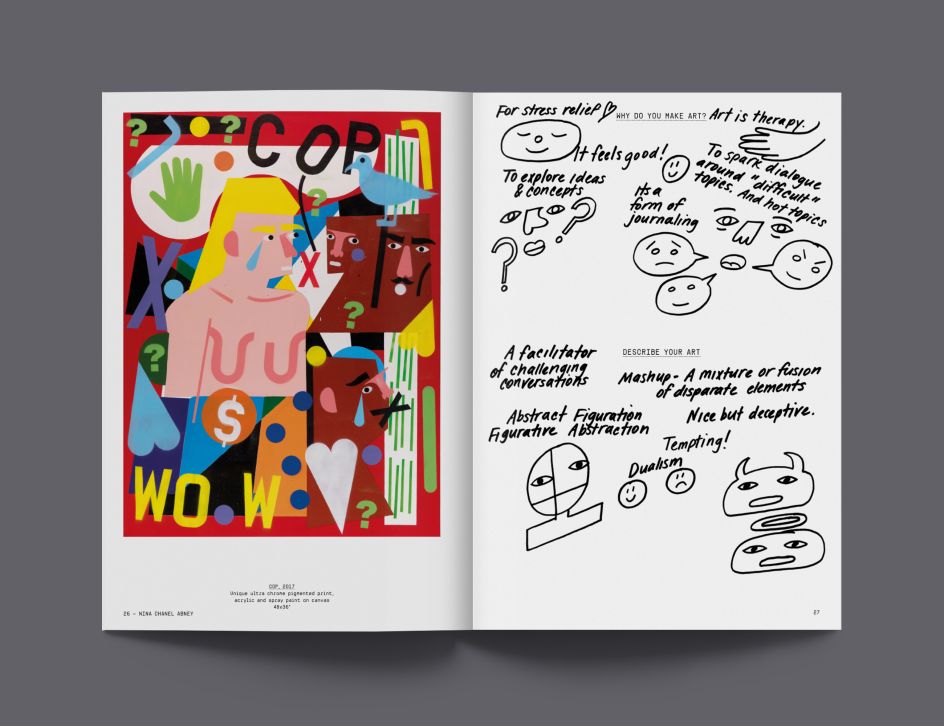 ? ? COP
?
X X
?
?
$
X
WO.W
?
COP, 2017
Unique ultra chrome pigmented print,
acrylic and spray paint on canvas
48x36"
26 – NINA CHANEL ABNEY
For stress relief
WHY DO YOU MAKE ART?
Art is therapy.
It feels good!
To explore ideas
& concepts
Its a
form of
journaling
To spark dialogue
around "difficult"
topics. And hot topics
? ?
DESCRIBE YOUR ART
A facilitator
of challenging
conversations
Mashup - A mixture or fusion
of disparate elements
Abstract Figuration
Figurative Abstraction
Nice but deceptive.
Tempting!
Dualism
27